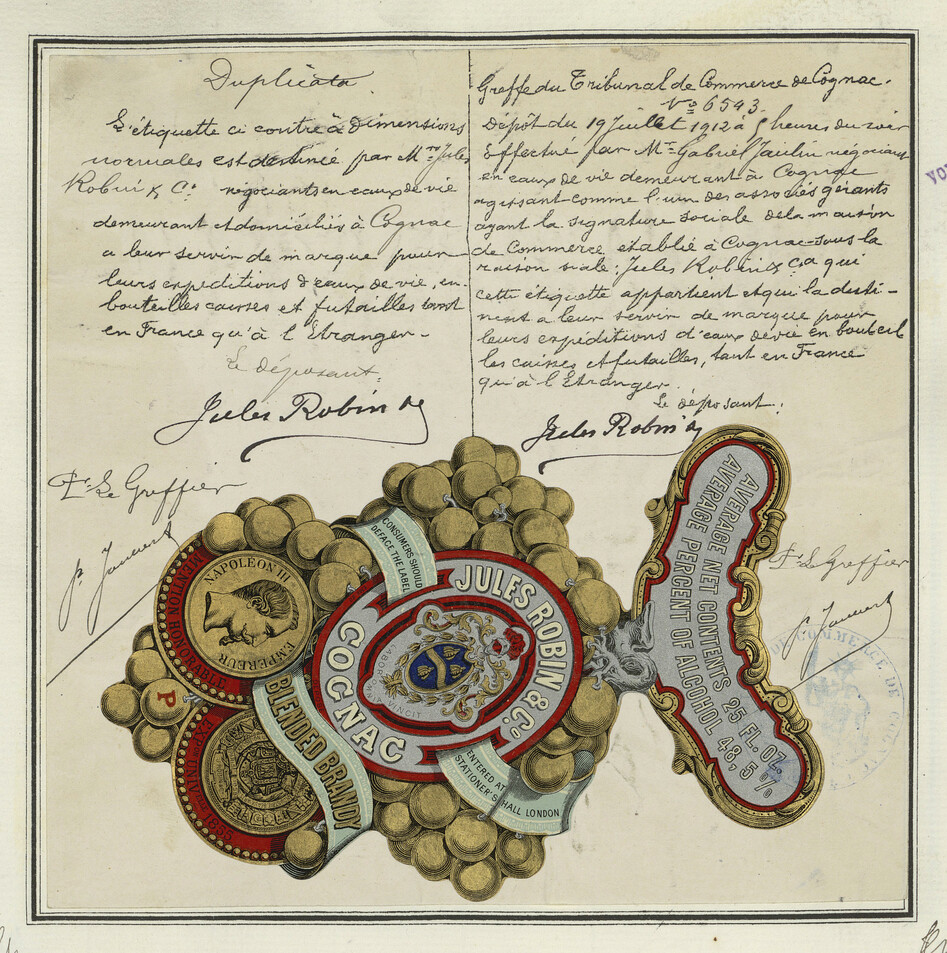 Duplicata
L'étiquette ci contre à dimensions
normales est destinée par Mrs Jules
Robin & Co négociants en eaux de vie
demeurant et domiciliés à Cognac
a leur servir de marque pour
leurs expéditions d'eaux de vie, en
bouteilles caisses et futailles tant
en France qu'à l'Etranger.
Le déposant.
Jules Robin
Le Greffier
Greffe du Tribunal de Commerce de Cognac.
No 6543.
Dépôt du 19 Juillet 1912 à 5 heures du soir
Effectué par Mr Gabriel Jaulin négociant
en eaux de vie demeurant à Cognac
agissant comme l'un des associés gérants
ayant la signature sociale de la maison
de Commerce établie à Cognac sous la
raison siale: Jules Robin & Ca qui
cette étiquette appartient et qui la desti-
nent a leur servir de marque pour
leurs expéditions d'eaux de vie en bouteil
les caisses et futailles, tant en France
qu'à l'Etranger.
Le déposant:
Jules Robin
Le Greffier
CONSUMERS SHOULD
DEFACE THE LABEL
JULES ROBIN & Co
COGNAC
LABOR
VINCIT
NAPOLEON III
EMPEREUR
MENTION HONORABLE
P
BLENDED BRANDY
EXPon UNIVlle 1855
ENTERED AT
STATIONER'S HALL LONDON
AVERAGE NET CONTENTS 25 FL. OZ.
AVERAGE PERCENT OF ALCOHOL 48,5 %
DE COMMERCE DE